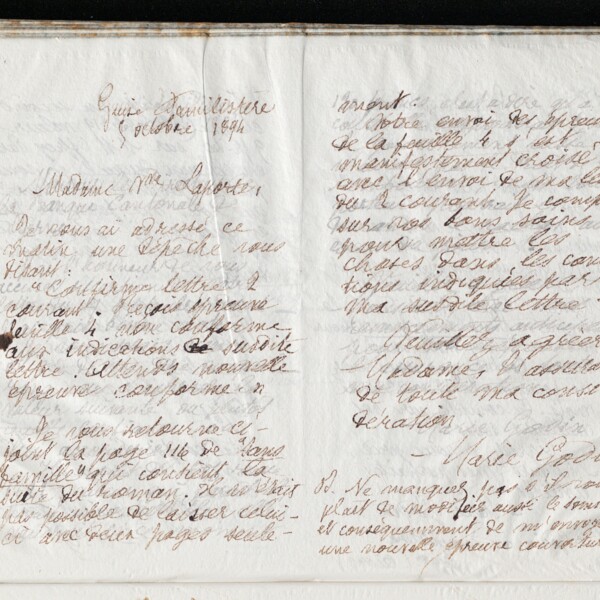 Guise Familistère
5 octobre 1894
Madame Vve Laporte,
Je vous ai adressé ce
matin une dépêche vous
disant:
"Confirme lettre 2
courant. Reçois épreuve
feuille 4 non conforme
aux indications susdite
lettre. Attends nouvelle
épreuve conforme."
Je vous retourne ci-
joint la page 116 de "Sans
famille" qui contient la
suite du roman. Il ne serait
pas possible de laisser celui-
ci avec deux pages seule-
ment.
Votre envoi des épreu
de la feuille 4 s'est
manifestement croisé
avec l'envoi de ma le
du 2 courant. Je comp
sur vos bons soins
pour mettre les
choses dans les con
tions indiquées par
ma susdite lettre.
Veuillez agréer
Madame, l'assura
de toute ma consi
dération
Marie God
Ne manquez pas s'il vou
plait de modifier aussi le som
et conséquemment de m'envoye
une nouvelle épreuve